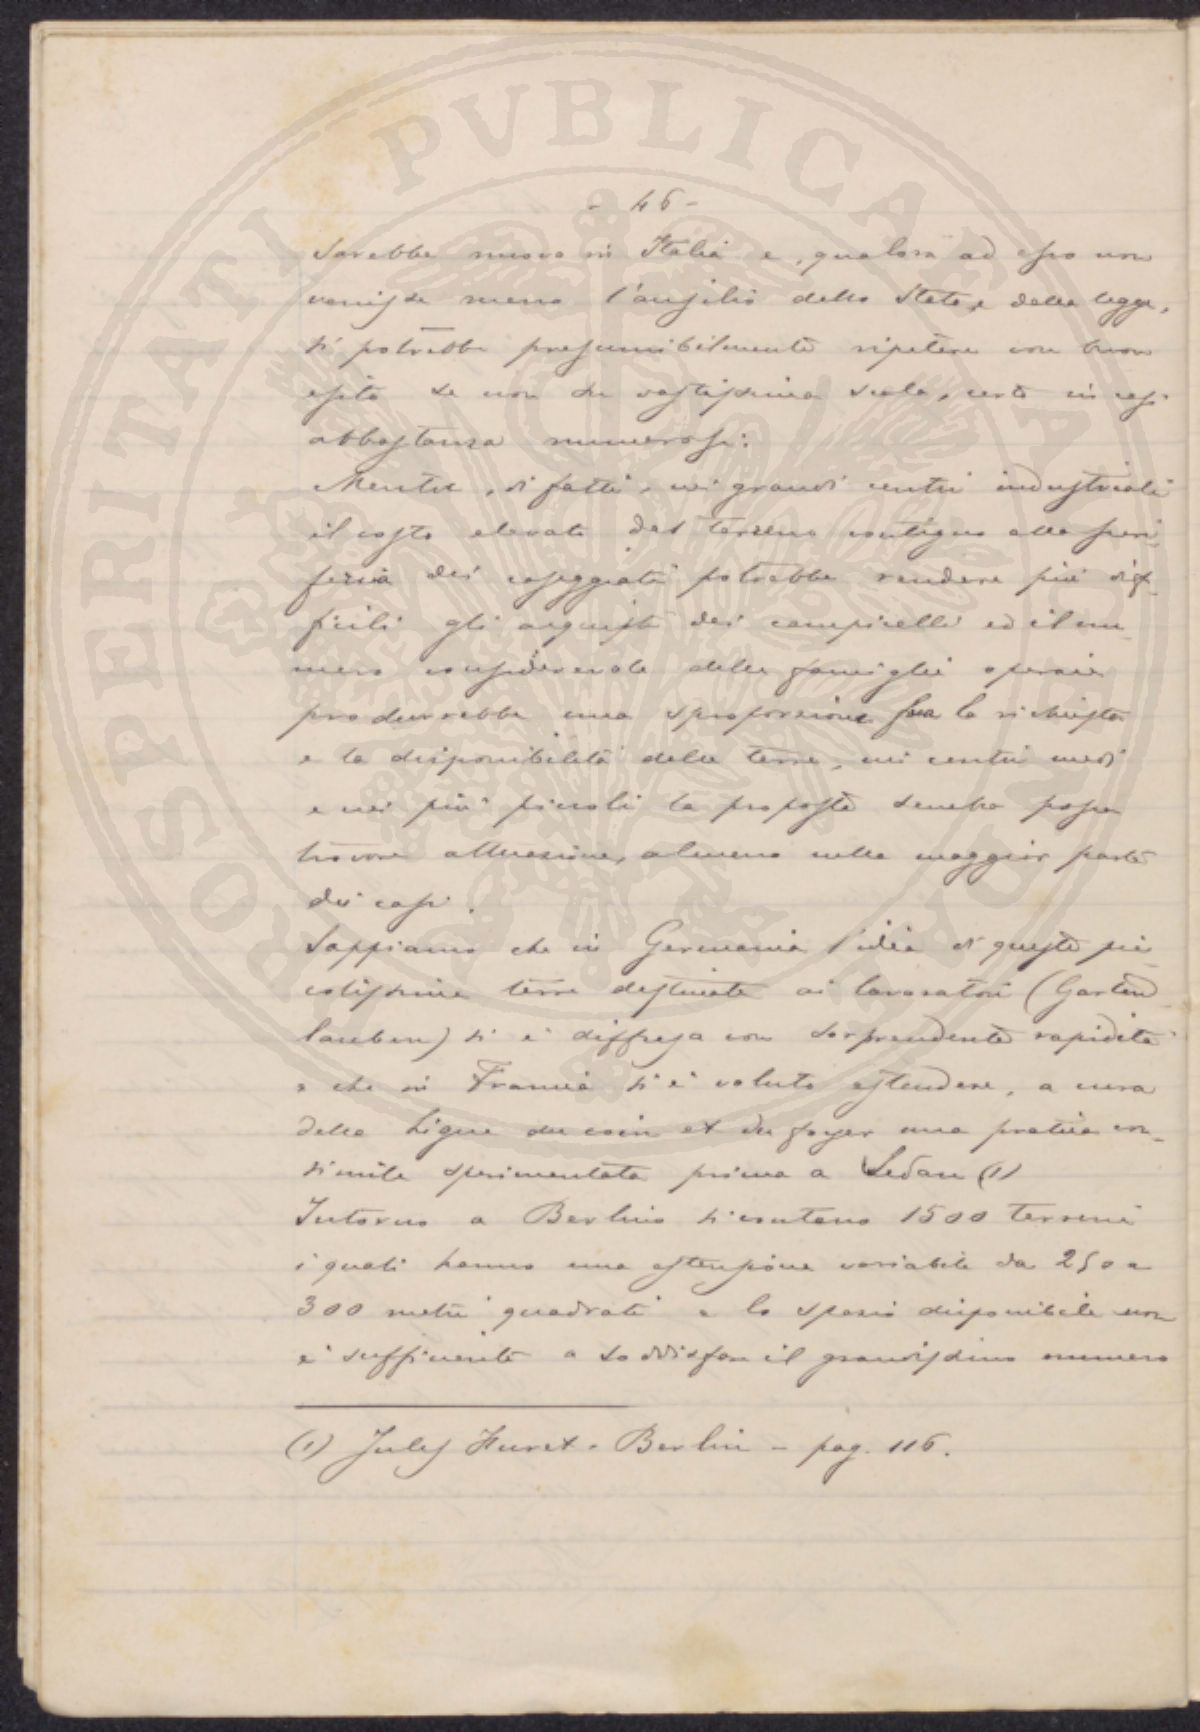 - 46 -
sarebbe nuovo in Italia e, qualora ad esso non
venisse meno l'ausilio dello Stato e della legge,
si potrebbe presumibilmente ripetere con buon
esito se non su vastissima scala, certo in casi
abbastanza numerosi.
Mentre, di fatti, nei grandi centri industriali
il costo elevato del terreno contiguo alla peri-
feria dei caseggiati potrebbe rendere più dif-
ficili gli acquisti dei campicelli ed il nu-
mero considerevole delle famiglie operaie
produrrebbe una sproporzione fra la richiesta
e la disponibilità delle terre, nei centri medi
e nei più piccoli la proposta sembra possa
trovare attuazione, almeno nella maggior parte
dei casi.
Sappiamo che in Germania l'idea di queste pic-
colissime terre destinate ai lavoratori (Garten-
lauben) si è diffusa con sorprendente rapidità
e che in Francia si è voluto estendere, a cura
della Ligue du coin et du foyer una pratica con-
simile sperimentata prima a Sedan (1)
Intorno a Berlino si contano 1500 terreni
i quali hanno una estensione variabile da 250 a
300 metri quadrati e lo spazio disponibile non
è sufficiente a soddisfare il grandissimo numero
(1) Jules Huret - Berlin - pag. 116.
PROSPERITATI PVBLICAE